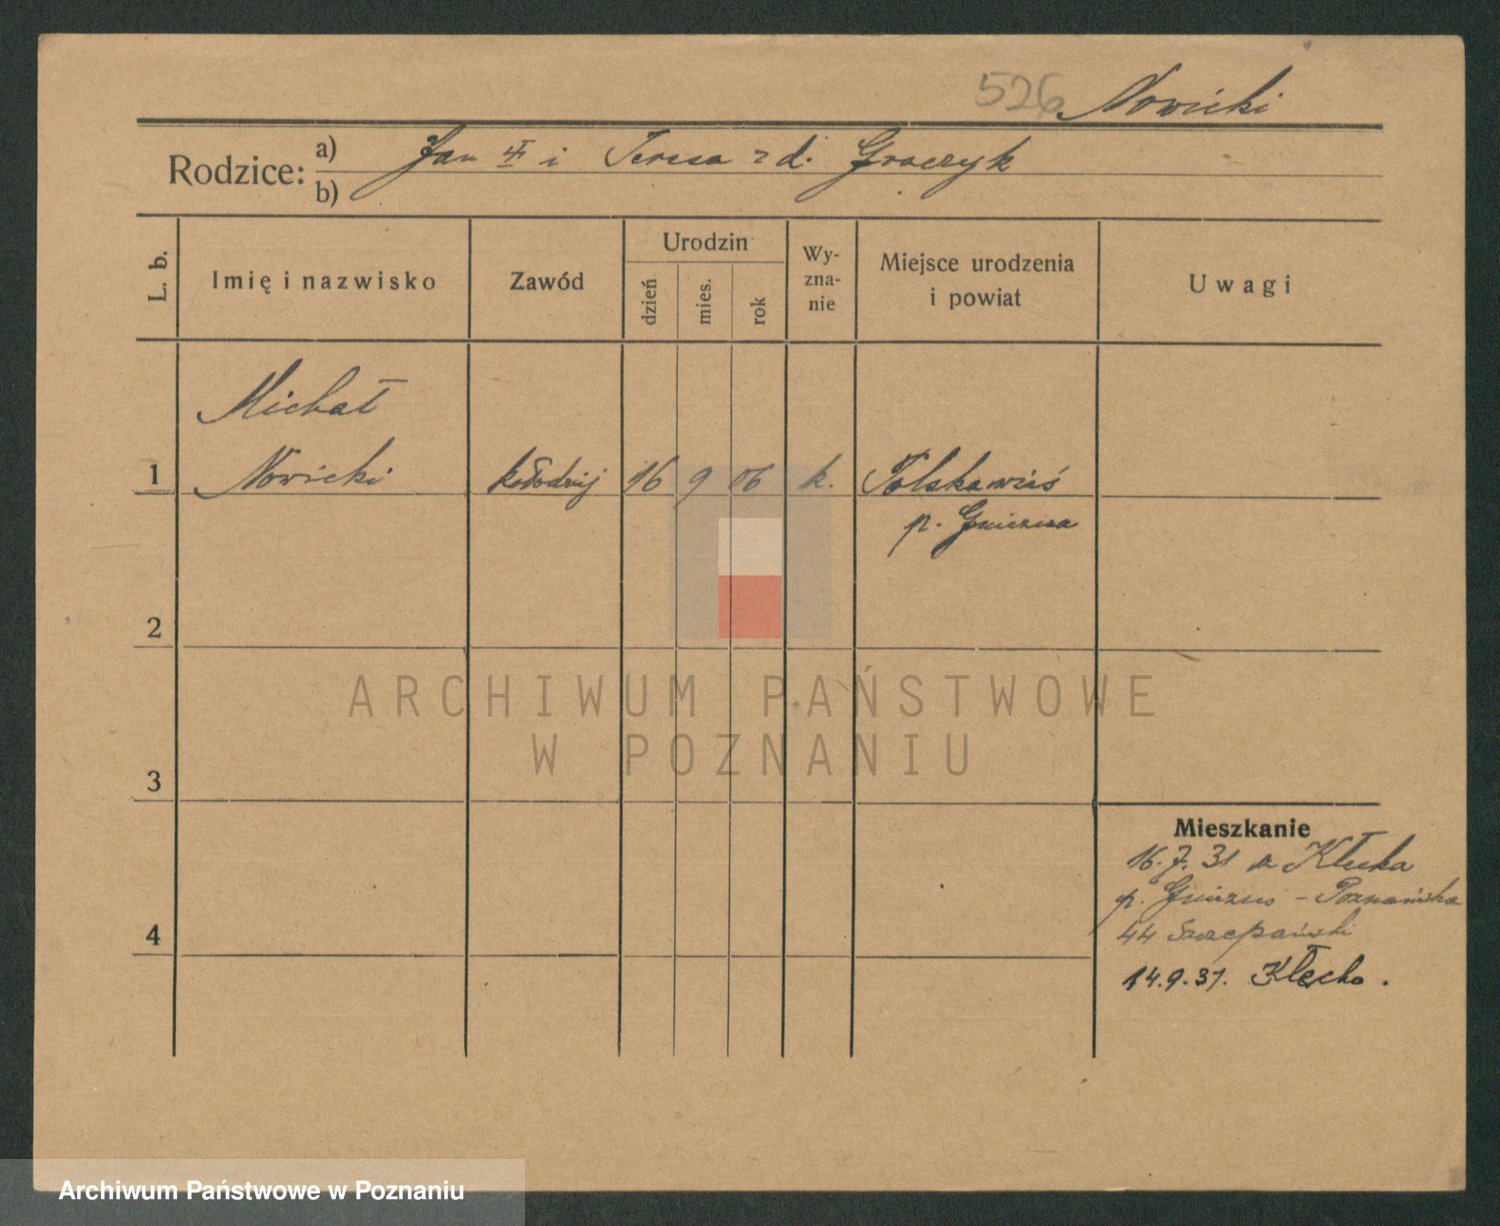 526 Nowicki
Rodzice: a) Jan i Teresa z d. Graczyk
b)
L. b.
Imię i nazwisko
Zawód
Urodzin
dzień
mies.
rok
Wy-
zna-
nie
Miejsce urodzenia
i powiat
Uwagi
Michał
1 Nowicki kołodziej 16 9 06 k. Polskawieś
p. Gniezna
2
ARCHIWUM PAŃSTWOWE
W POZNANIU
3
Mieszkanie
16.7.31 z Kłecka
p. Gniezno - Poznańska
4
44 Szczepański
14.9.31. Kłecko.
Archiwum Państwowe w Poznaniu